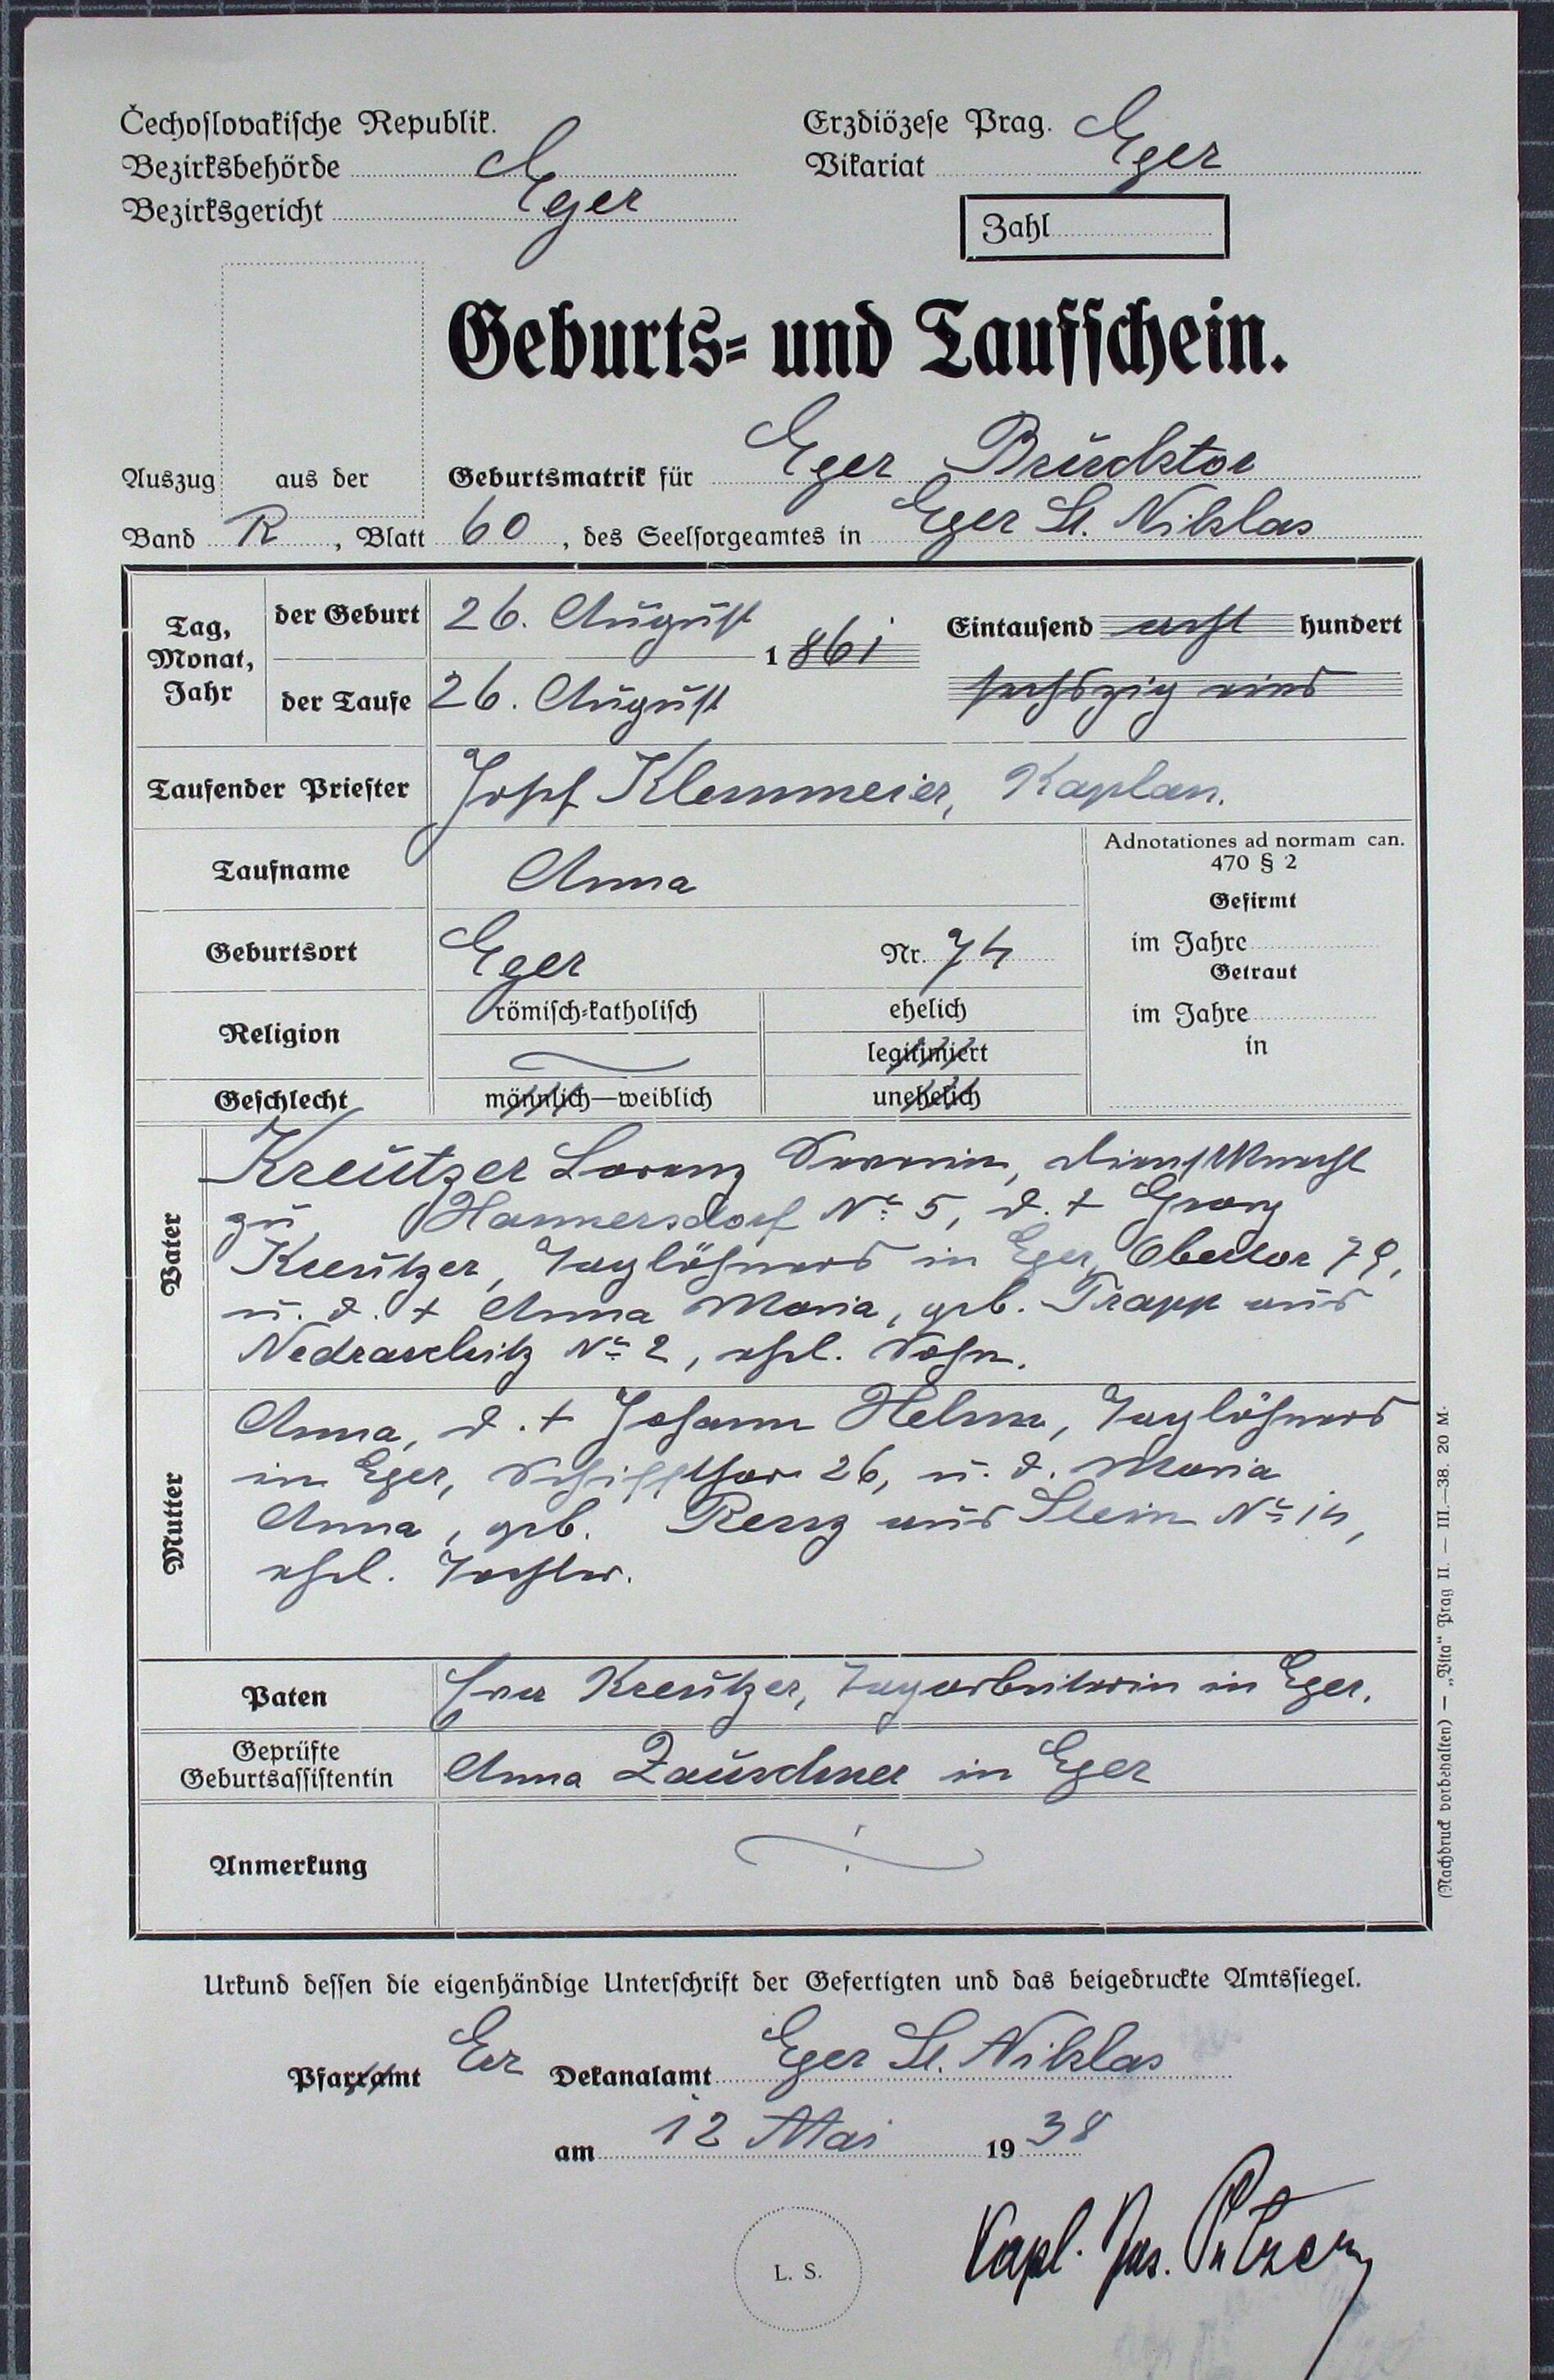 Čechoslovakische Republik.
Erzdiözese Prag.
Bezirksbehörde Eger
Vikariat Eger
Bezirksgericht Eger
Zahl
Geburts- und Taufschein.
Auszug aus der Geburtsmatrik für Eger Brucktor
Band R, Blatt 60, des Seelsorgeamtes in Eger St. Niklas
Tag, Monat, Jahr
der Geburt 26. August
1861 Eintausend acht hundert
der Taufe 26. August
sechszig eins
Taufender Priester Josef Klemmeier, Kaplan.
Taufname Anna
Adnotationes ad normam can.
470 § 2
Gefirmt
im Jahre
Getraut
im Jahre
in
Geburtsort Eger Nr. 74
Religion römisch-katholisch ehelich
legitimiert
Geschlecht männlich—weiblich unehelich
Vater
Kreutzer Lorenz, Dienstknecht
zu Hannersdorf No 5, d. + Georg
Kreutzer, Taglöhners in Eger, Obertor 79,
u. d. + Anna Maria, geb. Trapp aus
No 2, ehel. Sohn.
Mutter
Anna, d. + Johann Helm, Taglöhners
in Eger, Schiffthor 26, u. d. Maria
Anna, geb. Renz aus Stein No 14,
ehel. Tochter.
Paten Eva Kreutzer, Tagarbeiterin in Eger.
Geprüfte
Geburtsassistentin Anna Zauschner in Eger
Anmerkung
Urkund dessen die eigenhändige Unterschrift der Gefertigten und das beigedruckte Amtssiegel.
Pfarramt Erz Dekanalamt Eger St. Niklas
am 12 Mai 1938
L. S.
Kapl. Jos.
(Nachdruck vorbehalten) — „Vita“ Prag II. — III.—38. 20 M.